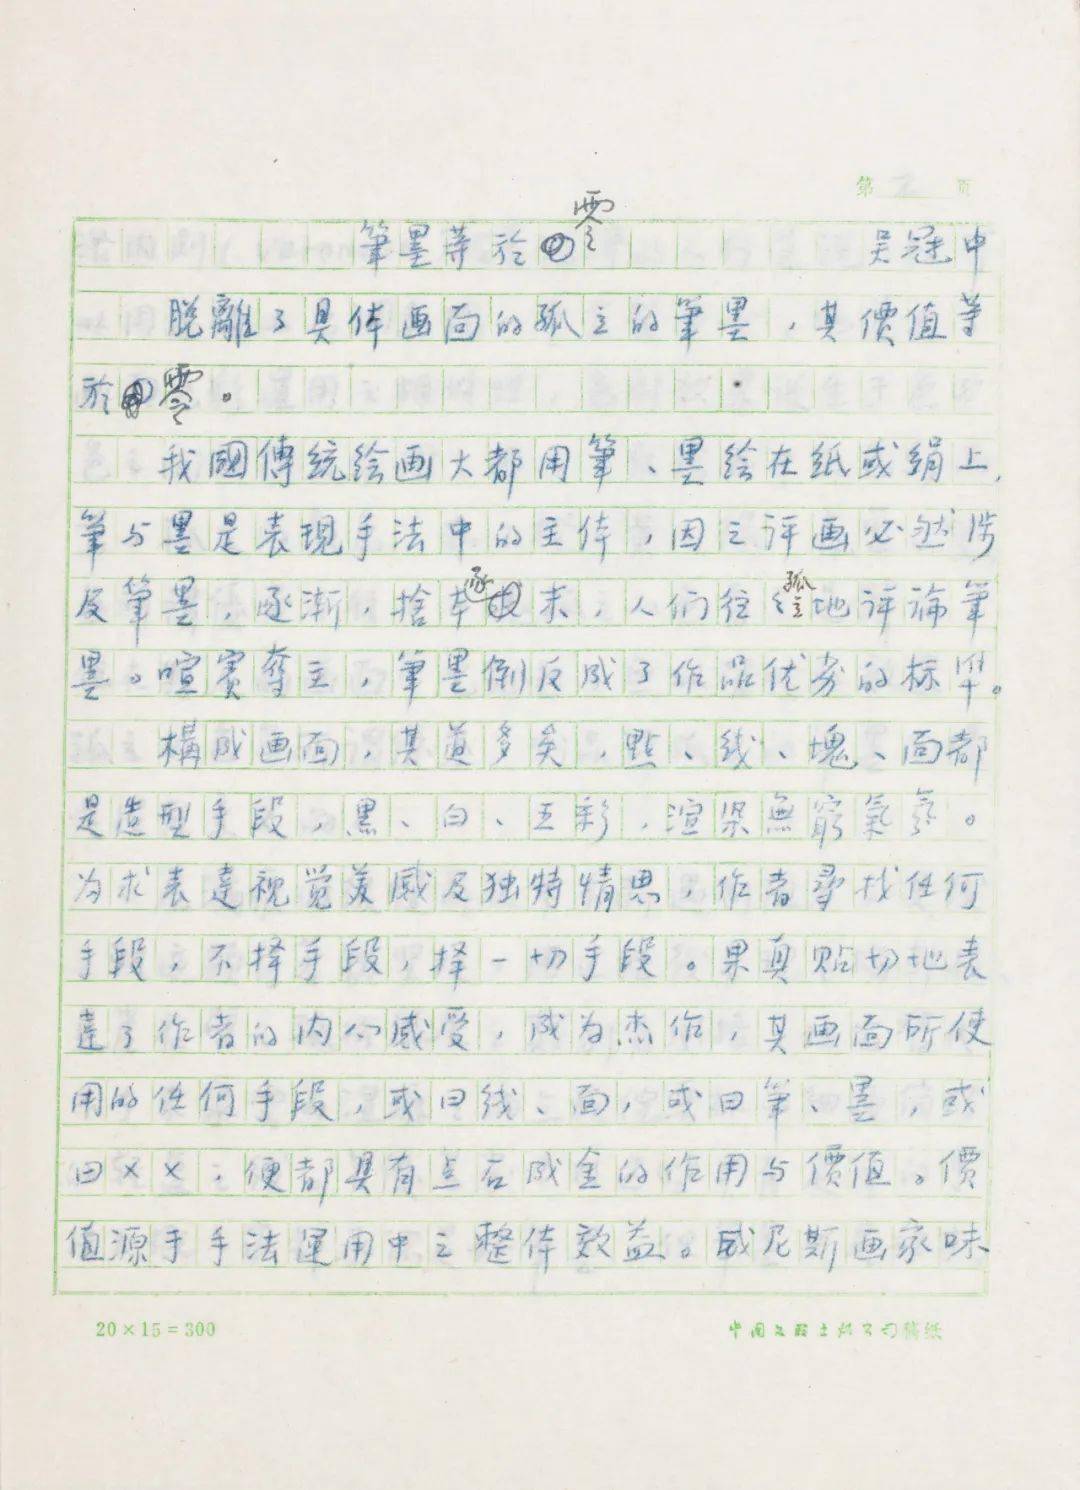 第 页
筆墨等於零 吳冠中
脱離了具体画面的孤立的筆墨，其價值等
於零。
我國傳統绘画大都用筆、墨绘在纸或绢上，
筆与墨是表現手法中的主体，因之评画必然涉
及筆墨，逐渐，捨本逐末，人们往往孤立地评論筆
墨。喧賓奪主，筆墨倒反成了作品优劣的标準。
構成画面，其道多矣，點、线、塊、面都
是造型手段，黑、白、五彩，渲染無窮氣氛。
为求表達視觉美感及独特情思，作者尋找任何
手段，不择手段，择一切手段。果真贴切地表
達了作者的内心感受，成为杰作，其画面所使
用的任何手段，或曰线、面，或曰筆、墨，或
曰××，便都具有点石成金的作用与價值。價
值源于手法運用中之整体效益。威尼斯画家味
20×15=300